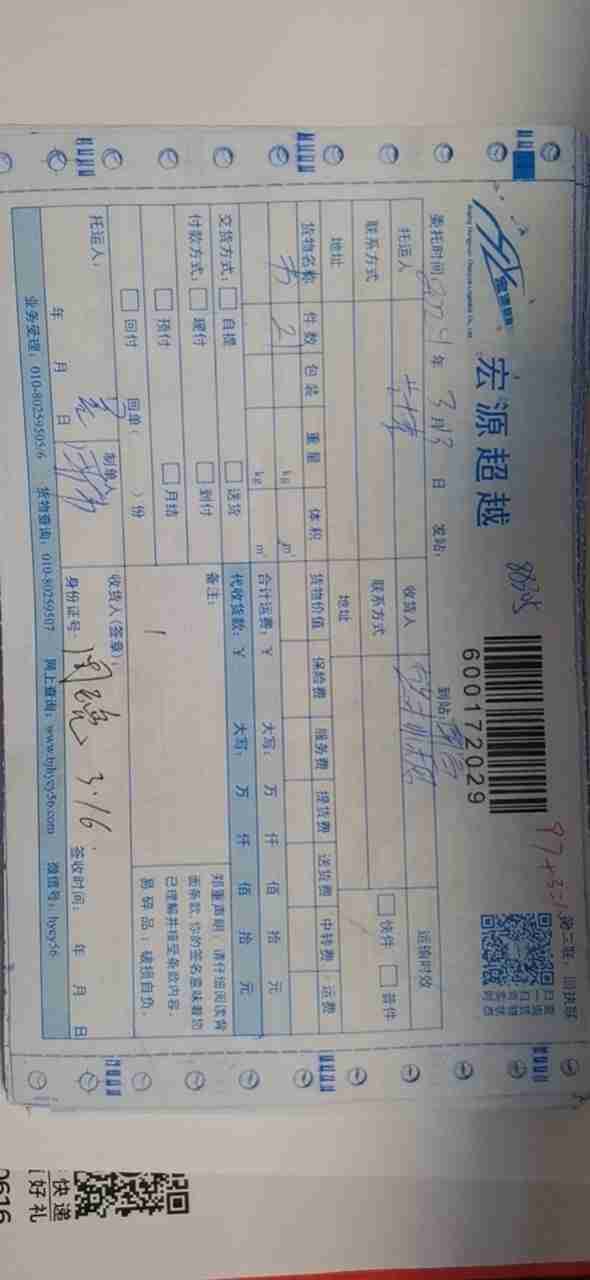 宏源超越
8825
600172029
第二联：回执联
委托时间：
年 3月13日 发站：
到站：
托运人
收货人
运输时效
联系方式
联系方式
快件 普件
地址
地址
货物名称 件数 包装 重量 体积 货物价值 保险费 服务费 提货费 送货费 中转费 运费
书 2 kg m³
kg m³
合计运费：￥ 大写： 万 仟 佰 拾 元
交货方式： 自提 送货
代收货款：￥ 大写： 万 仟 佰 拾 元
付款方式： 现付 到付
备注：
预付 月结
回付 回单（ ）份
郑重声明：请仔细阅读背
面条款,你的签名意味着您
已理解并接受条款内容。
易碎品：破损自负。
托运人：
制单人
收货人(签章)：
年 月 日
身份证号：
3.16
签收时间： 年 月 日
业务受理：010-80259505/6 货物查询：010-80259507 网上查询：www.bjhycy56.com 微信号：hycy56
快递
好礼